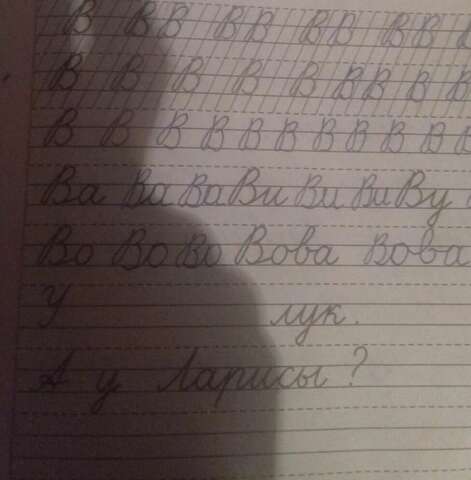 В В В В В В В В В
В В В В В В В В В
В В В В В В В В В В В В
Ва Ва Ва Ви Ви Ви Ву
Во Во Во Вова Вова
У лук.
А у Ларисы?